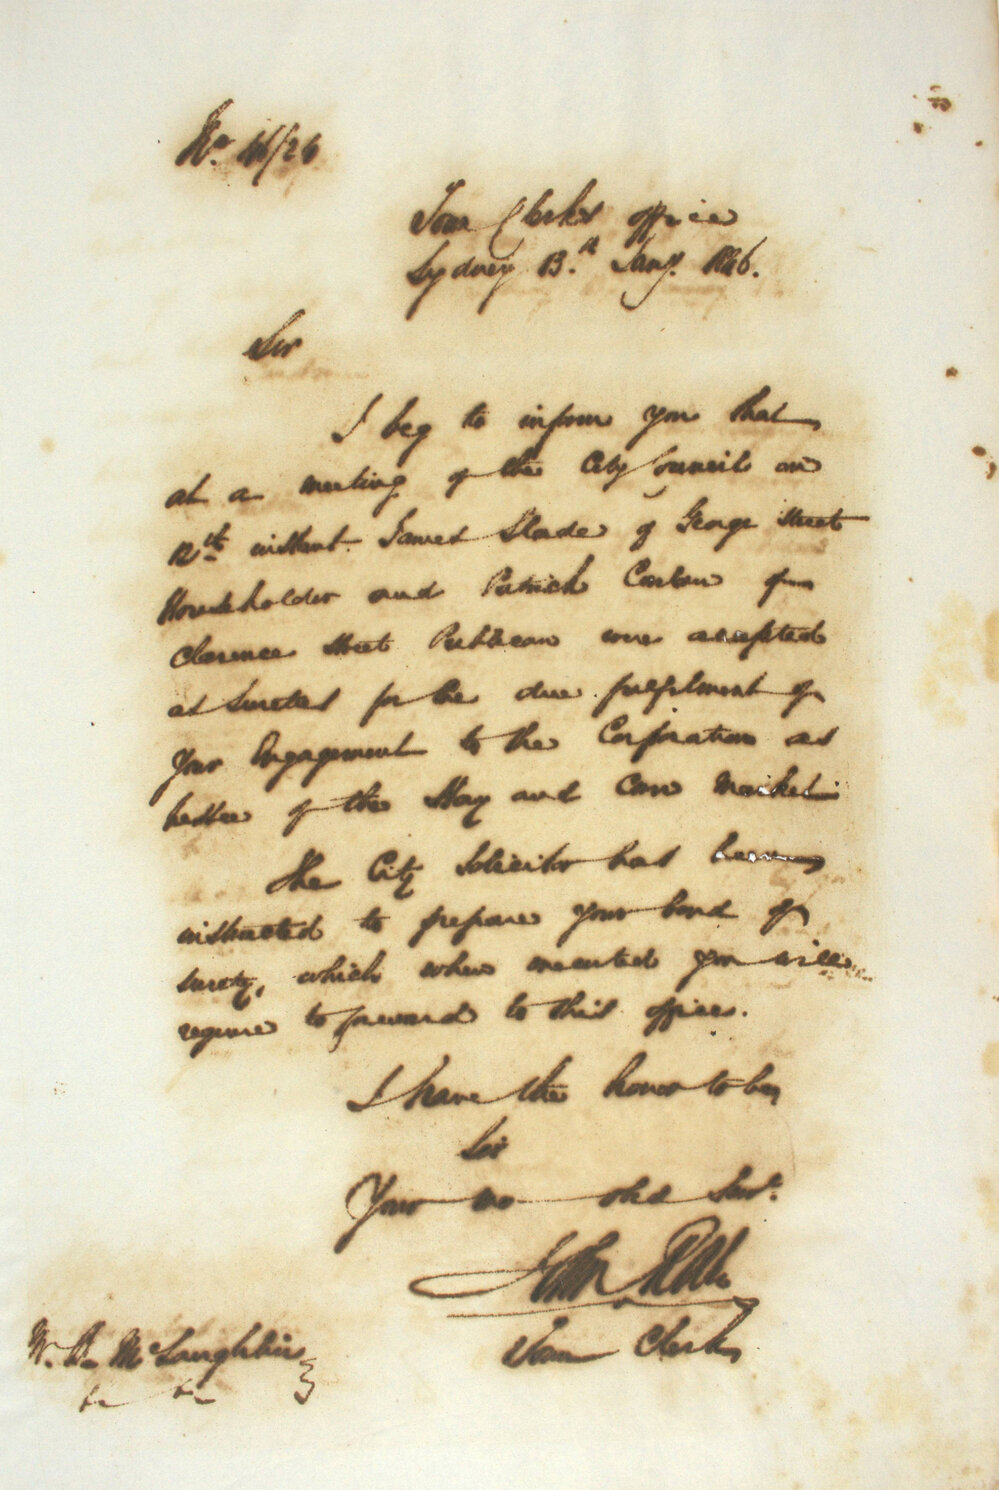 No. 46/26
Town Clerk's office
Sydney 13.th Jany. 1846.
Sir
I beg to inform you that
at a meeting of the City Council on
12th instant James Slade of George Street
Householder and Patrick Carlon of
Clarence Street Publican were accepted
as Sureties for the due fulfilment of
Your Engagement to the Corporation as
Lessee of the Hay and Corn Market
The City Solicitor has been
instructed to prepare your bond of
surety, which when executed you will
require to forward to this office.
I have the honor to be
Sir
Your mo obd Servt.
John
Town Clerk
McLaughlin